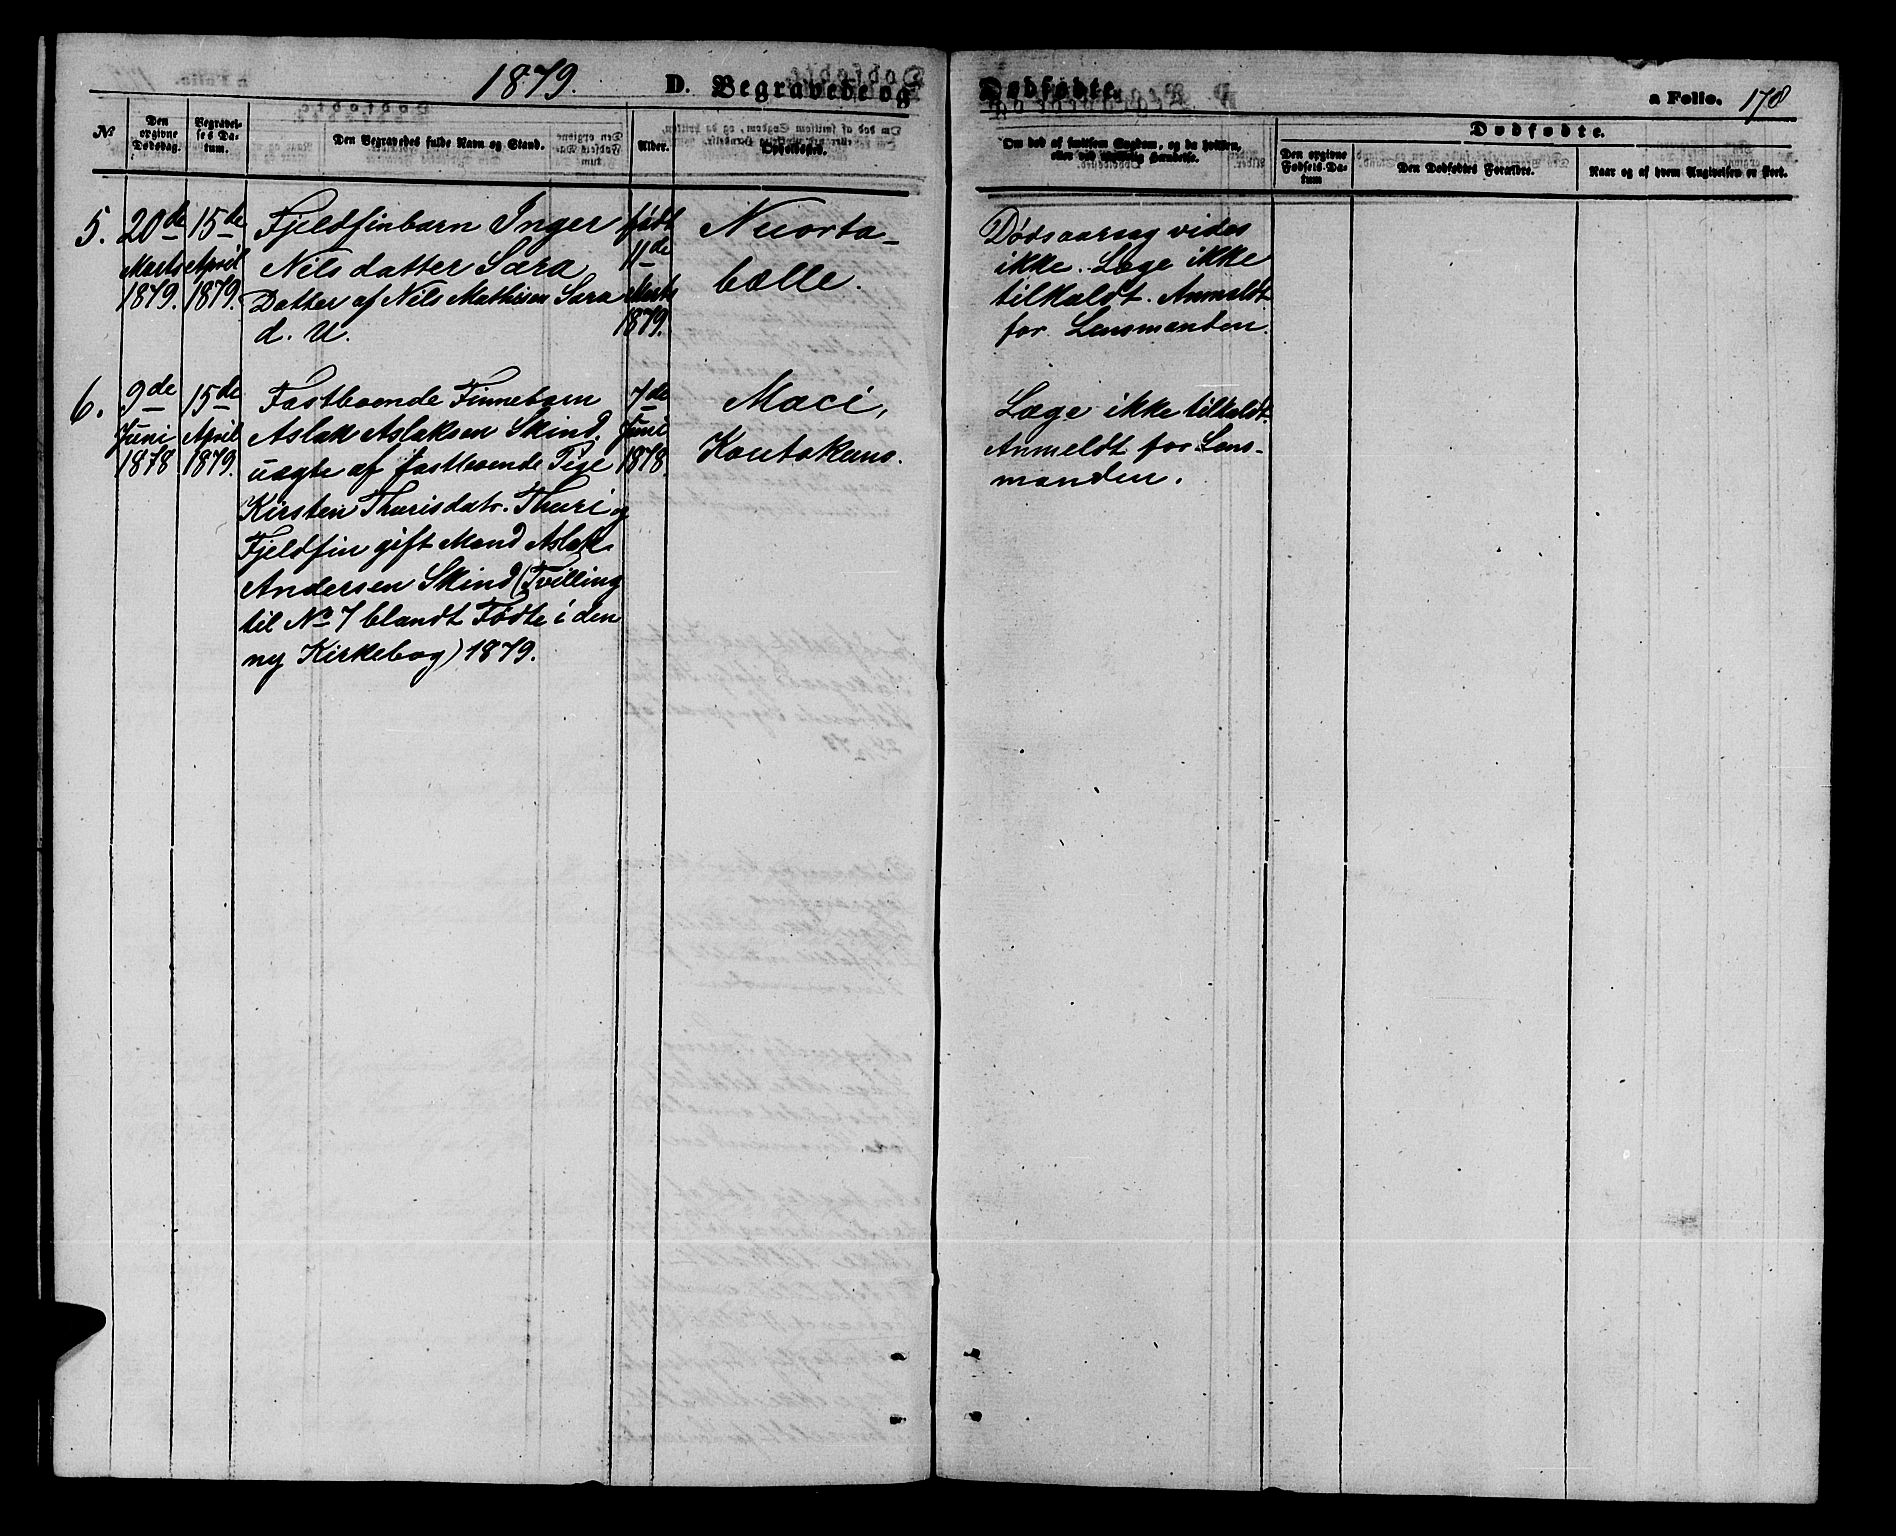 1879. D. Begravede og Dødfødte. a Folio. 178
№
Den opgivne Dødsdag.
Begravelses Datum.
Den Begravedes fulde Navn og Stand.
Alder.
Opholdssted.
Om død af smitsom Sygdom, og da hvilken, eller ved ulykkelig Hændelse.
Dødfødte.
Den opgivne Fødsels Datum
Den Dødfødtes Forældre.
Naar og af hvem Angivelsen er skeet.
5. 20de Marts 1879. 15de April 1879.
Fjeldfinbarn Inger
Nilsdatter Sara
Datter af Nils Mathisen Sara
d. U.
født
11de
Marts
1879.
Nuorta-
bælle.
Dødsaarsag vides
ikke. Læge ikke
tilkaldt. Anmeldt
for Lensmanden.
6. 9de Juni 1878 15de April 1879.
Fastboende Finnebarn
Aslak Aslaksen Skind.
uægte af fastboende Pige
Kirsten Thurisdatr. Thuri og
Fjeldfin gift Mand Aslak
Andersen Skind (Tvilling
til № 7 blandt Fødte i den
ny Kirkebog) 1879.
7de
Juni
1878.
Maci,
Koutokeino.
Læge ikke tilkaldt.
Anmeldt for Lens-
manden.